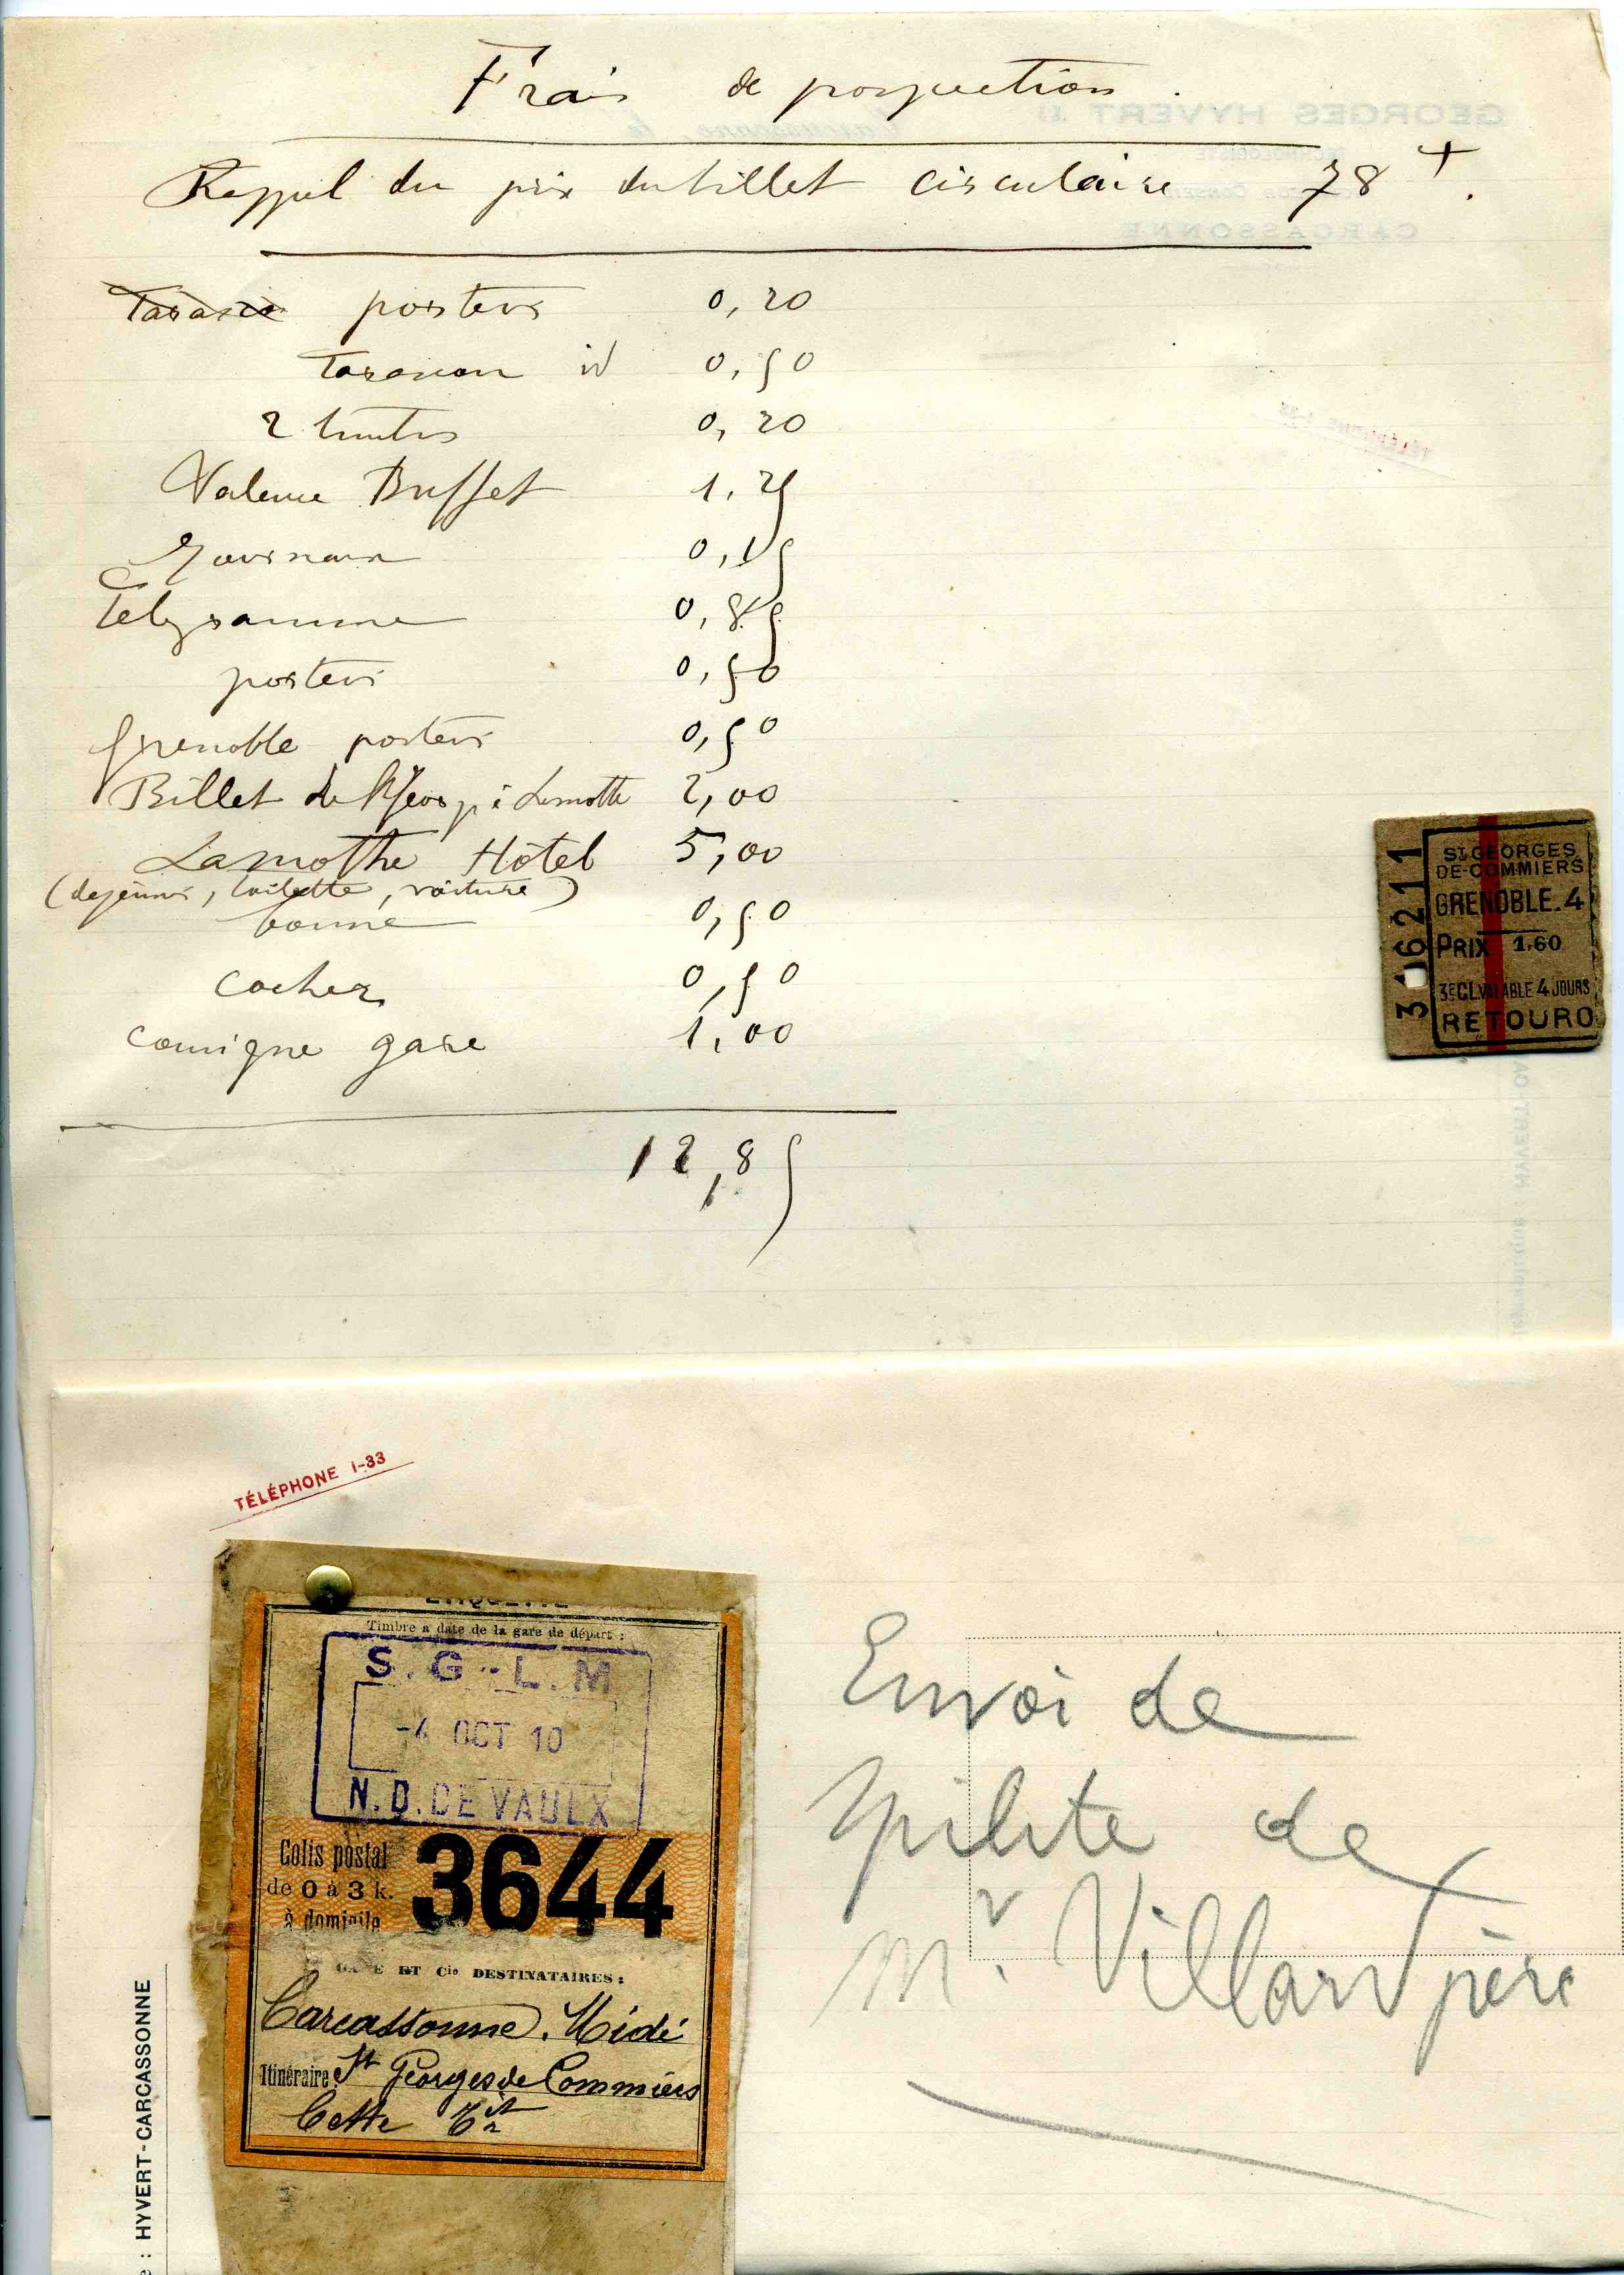 Frais de prospection.
Rappel du prix du billet circulaire 78 f.
Tarasco porteur 0,20
Tarascon id 0,50
2 timbres 0,20
Valence Buffet 1,25
Journaux 0,15
Telegramme 0,85
porteur 0,50
Grenoble porteur 0,50
Billet de St Georg à Lamotte 2,00
Lamothe Hôtel 5,00
(dejeuner, toilette, voiture)
bonne 0,50
cocher 0,50
consigne gare 1,00
12,85
GEORGES HYVERT
CARCASSONNE
TÉLÉPHONE 1-33
3 6211
ST GEORGES
DE-COMMIERS
GRENOBLE.4
PRIX 1.60
3E CL. VALABLE 4 JOURS
RETOUR O
TÉLÉPHONE 1-33
ETIQUETTE
Timbre a date de la gare de départ :
S.G-L.M
-4 OCT 10
N.D.DE VAULX
Colis postal
de 0 à 3 k.
à domicile
3644
GARE ET Cie DESTINATAIRES :
Carcassonne. Midi
Itinéraire St Georges de Commiers
Cette
: HYVERT-CARCASSONNE
Envoi de
spilite de
Mr Villard père